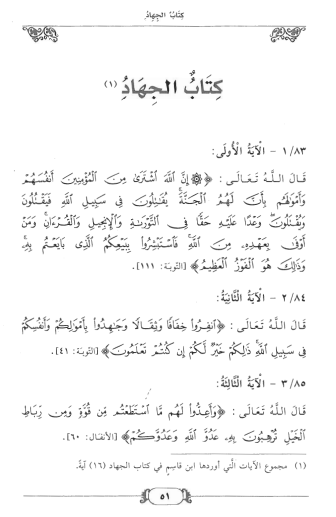 كِتَابُ الجِهَادِ
كِتَابُ الجِهَادِ (١)
١/٨٣ - الْآيَةُ الْأُولَى:
قَالَ اللَّهُ تَعَالَى: ﴿۞ إِنَّ اللَّهَ اشْتَرَىٰ مِنَ الْمُؤْمِنِينَ أَنفُسَهُمْ
وَأَمْوَالَهُم بِأَنَّ لَهُمُ الْجَنَّةَ ۚ يُقَاتِلُونَ فِي سَبِيلِ اللَّهِ فَيَقْتُلُونَ
وَيُقْتَلُونَ ۖ وَعْدًا عَلَيْهِ حَقًّا فِي التَّوْرَاةِ وَالْإِنجِيلِ وَالْقُرْآنِ ۚ وَمَنْ
أَوْفَىٰ بِعَهْدِهِ مِنَ اللَّهِ ۚ فَاسْتَبْشِرُوا بِبَيْعِكُمُ الَّذِي بَايَعْتُم بِهِ ۚ
وَذَٰلِكَ هُوَ الْفَوْزُ الْعَظِيمُ﴾ [التَّوْبَة: ١١١].
٢/٨٤ - الْآيَةُ الثَّانِيَةُ:
قَالَ اللَّهُ تَعَالَى: ﴿انفِرُوا خِفَافًا وَثِقَالًا وَجَاهِدُوا بِأَمْوَالِكُمْ وَأَنفُسِكُمْ
فِي سَبِيلِ اللَّهِ ۚ ذَٰلِكُمْ خَيْرٌ لَّكُمْ إِن كُنتُمْ تَعْلَمُونَ﴾ [التَّوْبَة: ٤١].
٣/٨٥ - الْآيَةُ الثَّالِثَةُ:
قَالَ اللَّهُ تَعَالَى: ﴿وَأَعِدُّوا لَهُم مَّا اسْتَطَعْتُم مِّن قُوَّةٍ وَمِن رِّبَاطِ
الْخَيْلِ تُرْهِبُونَ بِهِ عَدُوَّ اللَّهِ وَعَدُوَّكُمْ﴾ [الأنفال: ٦٠].
(١) مجموع الآيات الَّتي أوردها ابن قاسِم في كتاب الجهاد (١٦) آيَة.
٥١